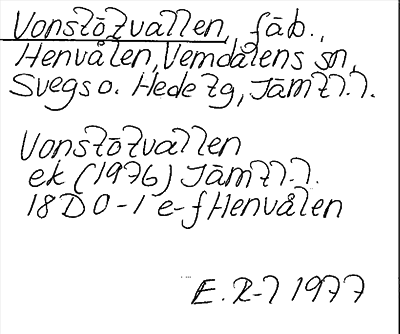 Vonstötvallen, fäb.,
Henvålen, Vemdalens sn,
Svegs o. Hede tg, Jämtl.l.
Vonstötvallen
ek (1976) Jämtl.l.
18D 0-1 e-f Henvålen
E.R-l 1977